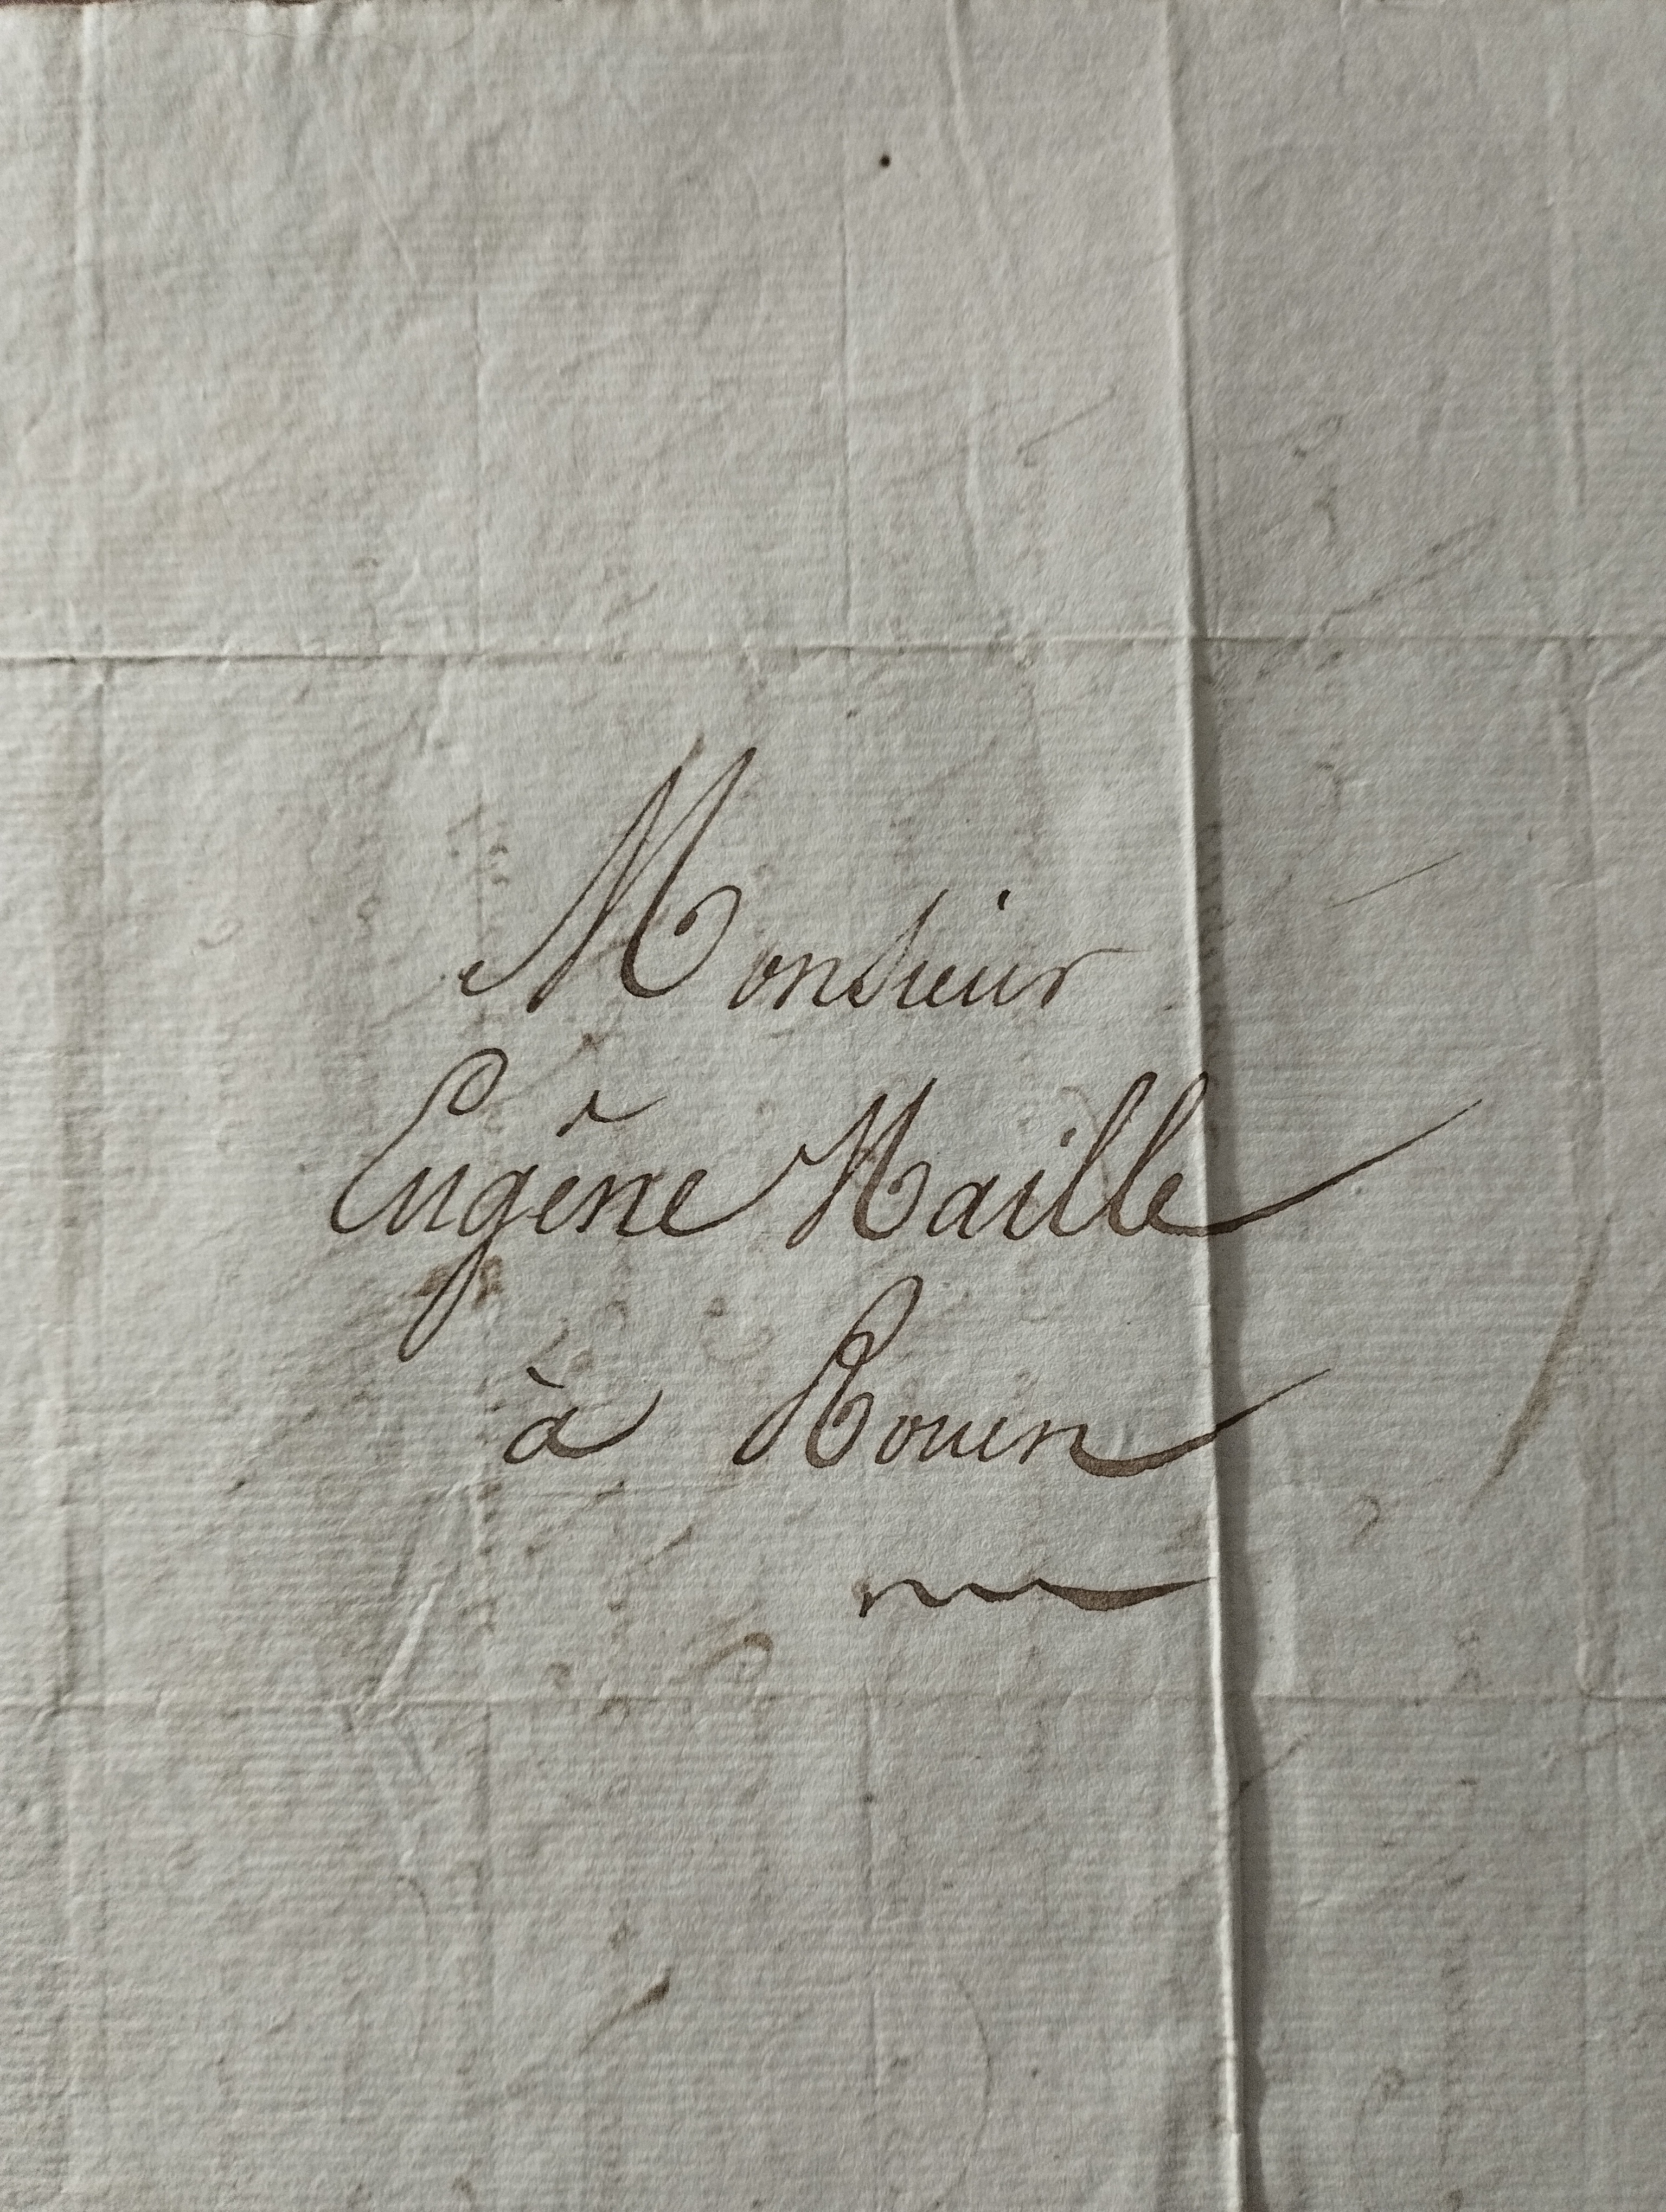 Monsieur
Eugène Maille
à Rouen